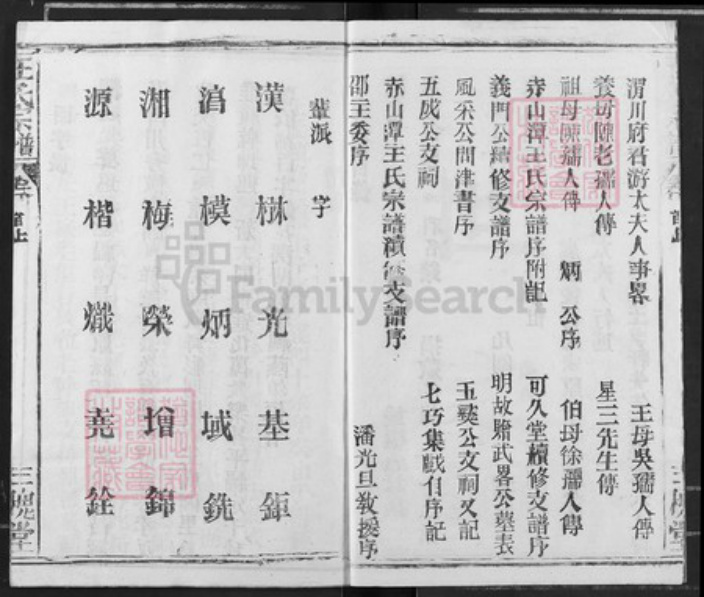 渭川府君游太夫人事畧
王母吳孺人傳
養母陳老孺人傳
星三先生傳
祖母陳孺人傳
炳公序
伯母徐孺人傳
赤山潭王氏宗譜序附記
可久堂續修支譜序
義門公續修支譜序
明故贈武畧公墓表
風采公問津書序
玉英公支祠又記
五成公支祠
七巧集戱自序記
赤山潭王氏宗譜支譜序
邵王委序
潘光旦教援序
輩派字
漢樹光基鉅
滈模炳域銑
湘梅榮增錦
源楷熾堯銓
王氏宗譜
卷首上
三槐堂
三槐堂
FamilySearch